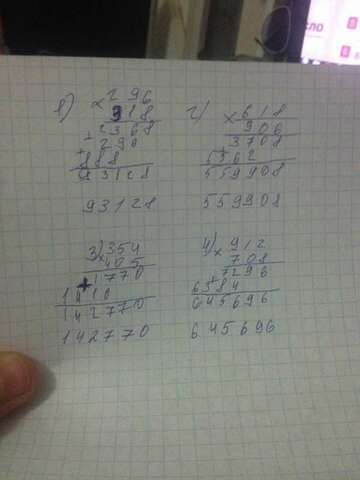 1)
× 296
318
+ 2368
290
+
888
93128
93128
2)
× 618
906
3708
+
5562
559908
559908
3) × 354
405
+ 1770
1416
142770
142770
4) × 912
708
7296
+
6384
645696
645696